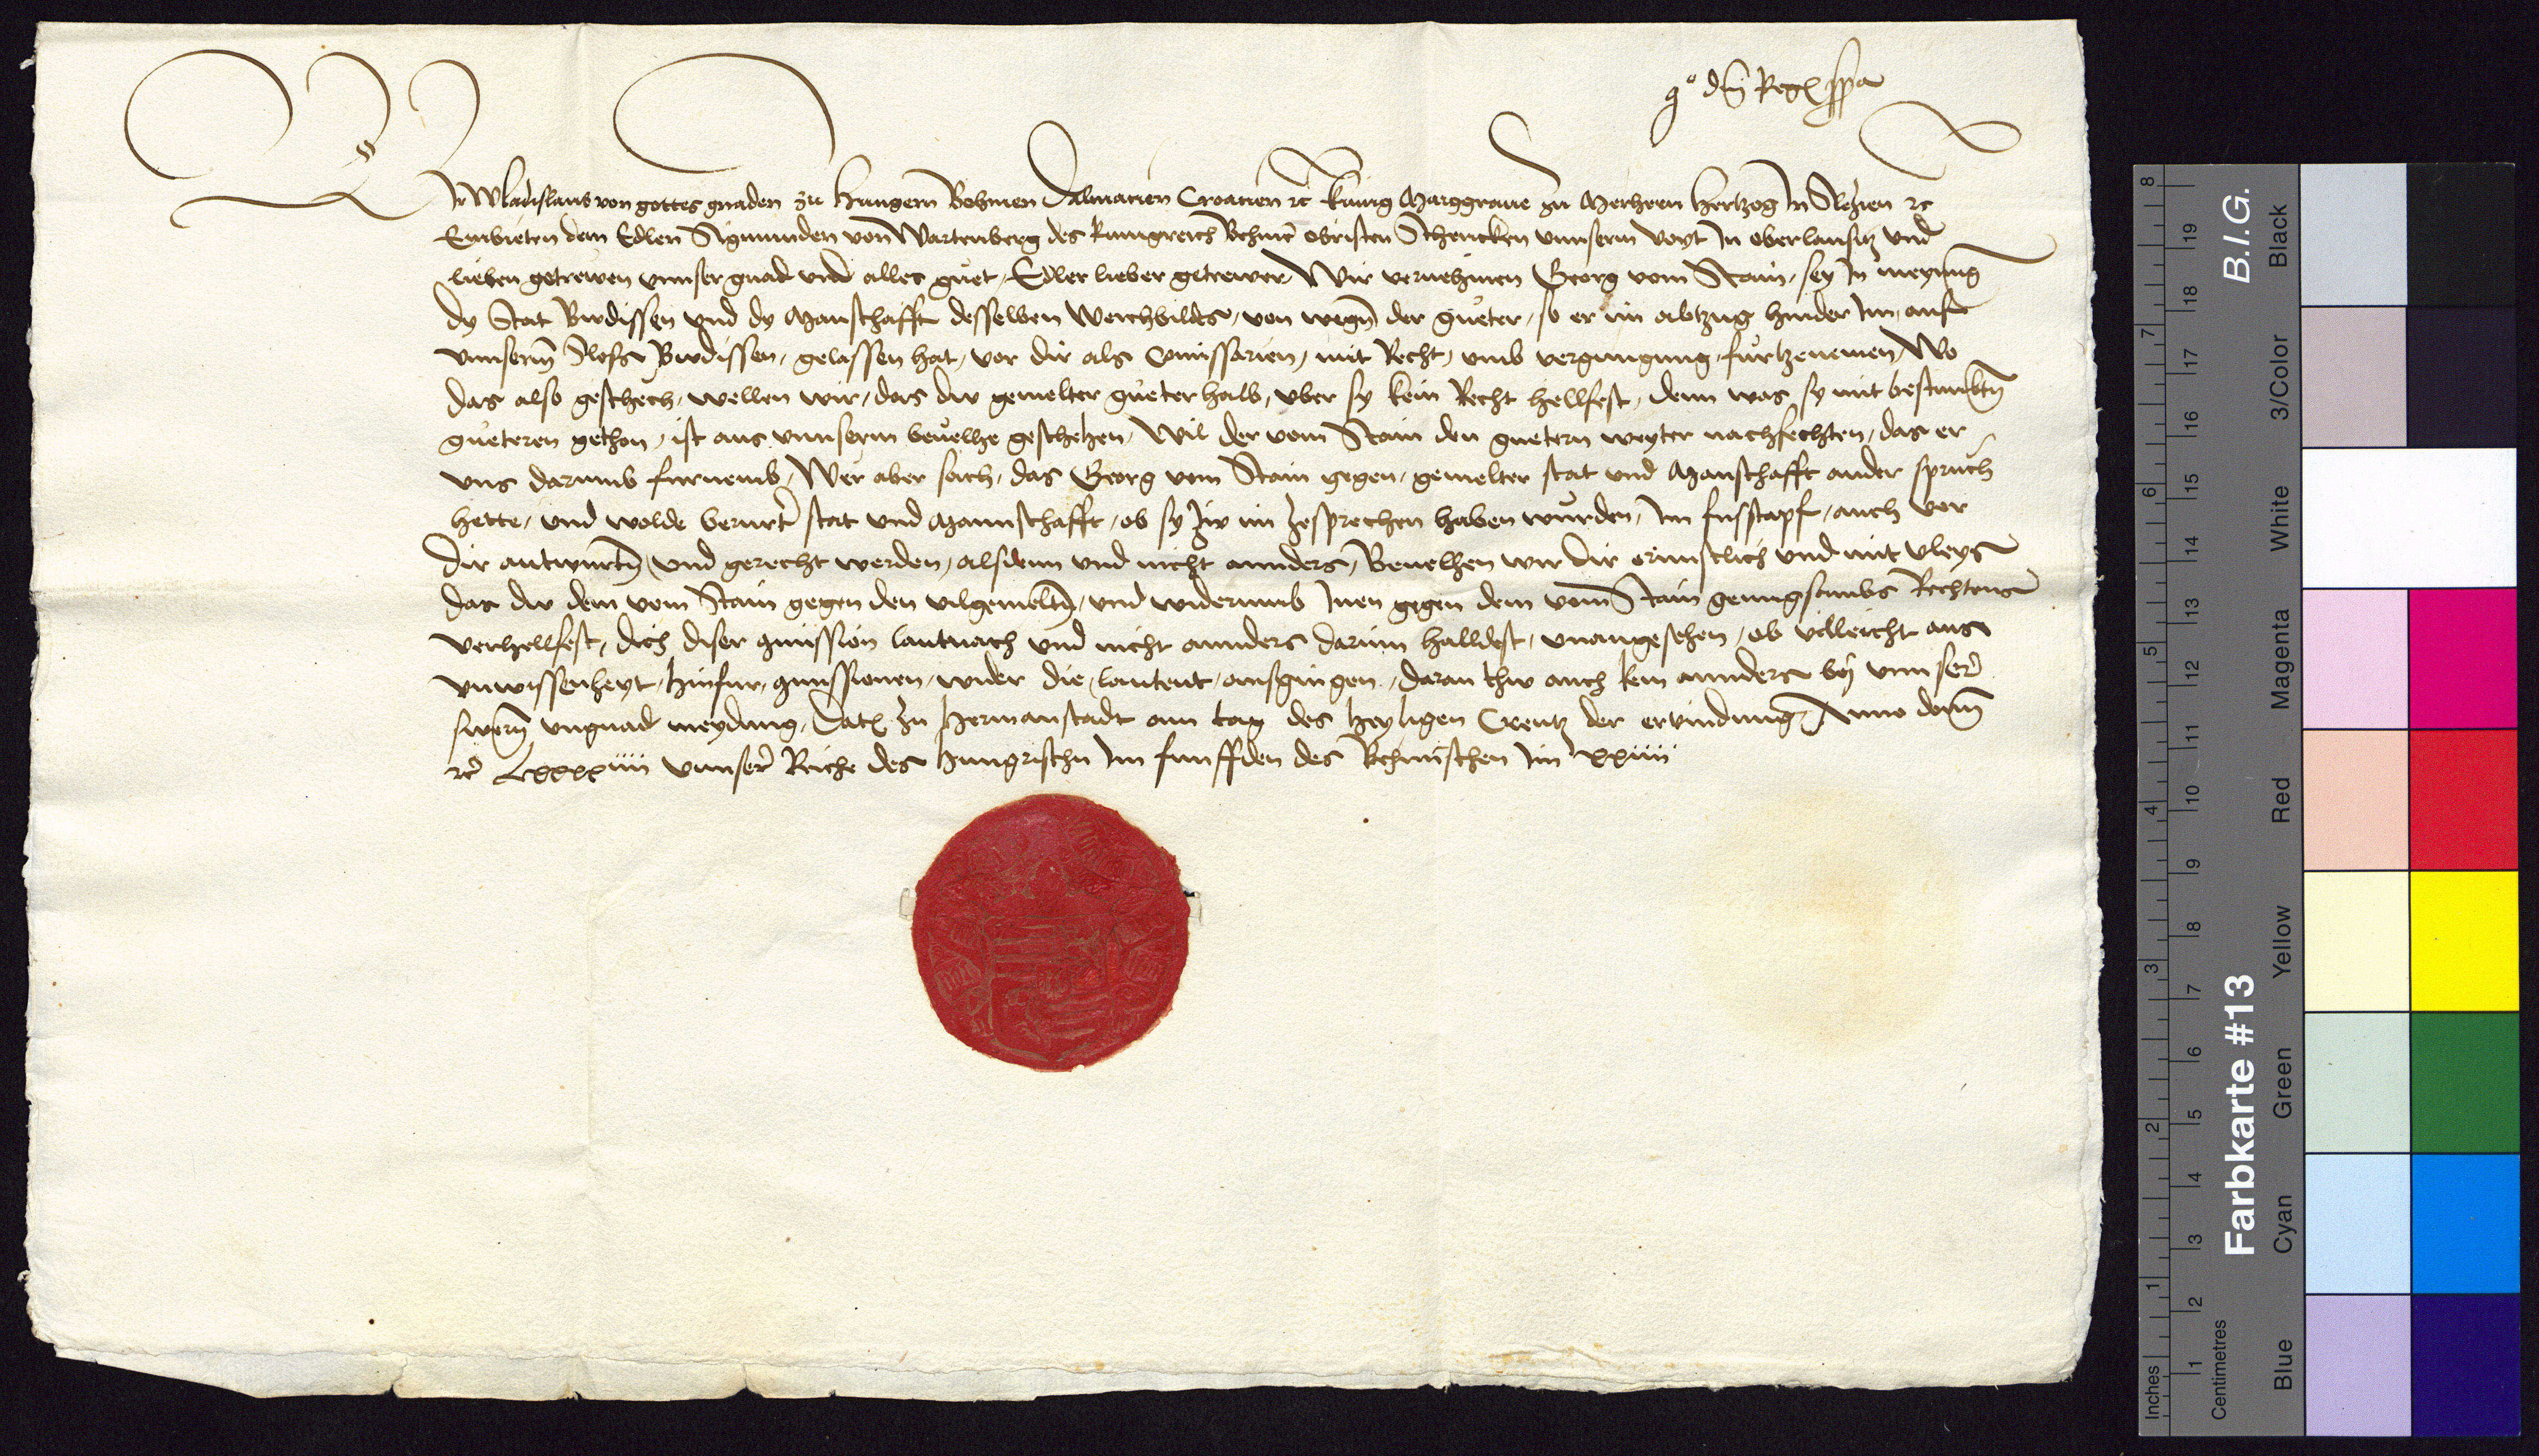 dni Regs ppa
Wir Wladislaus von gottes gnaden zu Hungern Behmen Dalmacien Croacien rc kunig Marggraue zu Merhern Hertzog In Slesien rc
Embieten dem Edlen Sigmunden von Wartenberg des kunigreich Behmen obristen Schencken vnnserm voyt In oberlausitz vnd
lieben getrewen vnnser gnad vnd alles guet, Edler lieber getrewer, Wir vernehmen Georg vom Stain, sey In meynung
dy Stat Budissen vnd dy Manschafft desselben Weichbildes, von wegn der gueter, so er im abtzug hinder Im, auff
vnnserm Slos Budissen, gelassen hat, vor dir als Comissarien, mit Recht, vmb vergnugung, furtzenemen, Wo
das also geschech, wellen wir, das du gemelter gueter halb, vber sy kein Recht hellfest, denn was sy mit bestimbtn
gueteren gethon, ist aus vnnserm beuelhe geschehen, Wil der vom Stain den guetern weyter nachfechten, das er
vns darumb furnemb, Wer aber sach, das Georg vom Stain gegen, gemelter stat vnd Manschafft ander spruch
hette, vnd wolde berurte stat vnd Mannschafft, ob sy zu im zesprechen haben wurden, Im fusstapf, auch vor
dir antwurtn, vnd gerecht werden, alsdenn vnd nicht annders, Beuelhen wir dir ernnstlich vnd mit vleys
das du dem vom Stain gegen den vilgemeltn, vnd widerumb Inen gegen dem vom Stain genugsambs Rechtens
verhellfest, dich diser comission lautnach vnd nicht annders darinn halldest, vnangesehen, ob villeicht aus
vnwissenheyt, hinfur, comissionen, wider die, lautent, ausgingen, daran thu auch kein annders bey vnnser
swern vngnad meydung, Datum zu Hermanstadt am tag des heyligen Creutz der ervindung, Anno domini
rc Lxxxxiiii vnnser Reiche des Hungrischn Im funffden des Behmischen Im xxiiii
Inches
Centimetres
1 2 3 4 5 6 7 8
1 2 3 4 5 6 7 8 9 10 11 12 13 14 15 16 17 18 19
Farbkarte #13
B.I.G.
Blue
Cyan
Green
Yellow
Red
Magenta
White
3/Color
Black